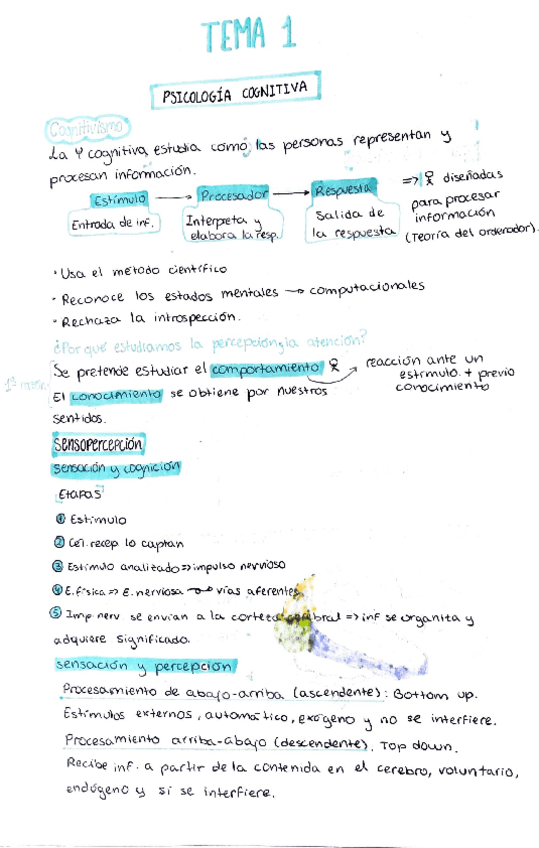 TEMA 1
PSICOLOGÍA COGNITIVA
Cognitivismo
La Ψ cognitiva estudia como las personas representan y
procesan información.
Estímulo → Procesador → Respuesta
Entrada de inf.
Interpreta y
elabora la resp.
Salida de
la respuesta
=> diseñadas
para procesar
información
(Teoría del ordenador).
· Usa el método científico
· Reconoce los estados mentales → computacionales
· Rechaza la introspección.
¿Por qué estudiamos la percepción y la atención?
Se pretende estudiar el comportamiento → reacción ante un
estímulo + previo
conocimiento
El conocimiento se obtiene por nuestros
sentidos.
SENSOPERCEPCIÓN
sensación y cognición
Etapas
① Estímulo
② Cel. recep lo captan
③ Estímulo analizado => impulso nervioso
④ E. física => E. nerviosa → vías aferentes
⑤ Imp nerv se envian a la corteza cerebral => inf se organita y
adquiere significado.
sensación y percepción
Procesamiento de abajo-arriba (ascendente): Bottom up.
Estímulos externos, automático, exógeno y no se interfiere.
Procesamiento arriba-abajo (descendente). Top down.
Recibe inf. a partir de la contenida en el cerebro, voluntario,
endógeno y si se interfiere.